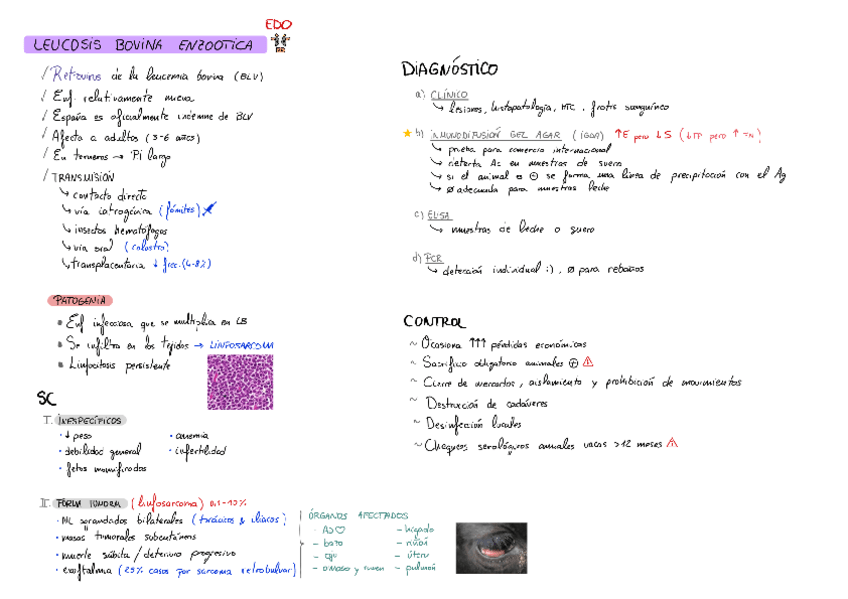 EDO
LEUCOSIS BOVINA ENZOOTICA
/ Retrovirus de la leucemia bovina (BLV)
/ Enf. relativamente nueva
/ España es oficialmente indemne de BLV
/ Afecta a adultos (3-6 años)
/ En terneros → PI largo
/ TRANSMISIÓN
↳ contacto directo
↳ vía iatrogénica (fómites)
↳ insectos hematófagos
↳ vía oral (calostro)
↳ transplacentaria ↓ frec. (4-8%)
PATOGENIA
Enf infecciosa que se multiplica en LB
Se infiltra en los tejidos → LINFOSARCOMA
Linfocitosis persistente
SC
I. INESPECÍFICOS
· ↓ peso
· debilidad general
· fetos momificados
· anemia
· infertilidad
II. FORMA TUMORAL (linfosarcoma) 0,1-10%
· NL agrandados bilaterales (torácicos & ilíacos)
· masas tumorales subcutáneas
· muerte súbita / deterioro progresivo
· exoftalmia (25% casos por sarcoma retrobulvar)
ÓRGANOS AFECTADOS
- AD♡
- bazo
- ojo
- omaso y
- hígado
- riñón
- útero
- pulmón
DIAGNÓSTICO
a) CLÍNICO
↳ lesiones, histopatología, HTC, frotis sanguíneo
b) INMUNODIFUSIÓN GEL AGAR (IGDA) ↑E pero ↓S
↳ prueba para comercio internacional
↳ detecta Ac en muestras de suero
↳ si el animal es ⊕ se forma una línea de precipitación con el Ag
↳ ø adecuada para muestras leche
c) ELISA
↳ muestras de leche o suero
d) PCR
↳ detección individual :), ø para rebaños
CONTROL
~ Ocasiona ↑↑↑ pérdidas económicas
~ Sacrificio obligatorio animales ⊕ ⚠
~ Cierre de mercados, aislamiento y prohibición de movimientos
~ Destrucción de cadáveres
~ Desinfección locales
~ Chequeos serológicos anuales vacas >12 meses ⚠